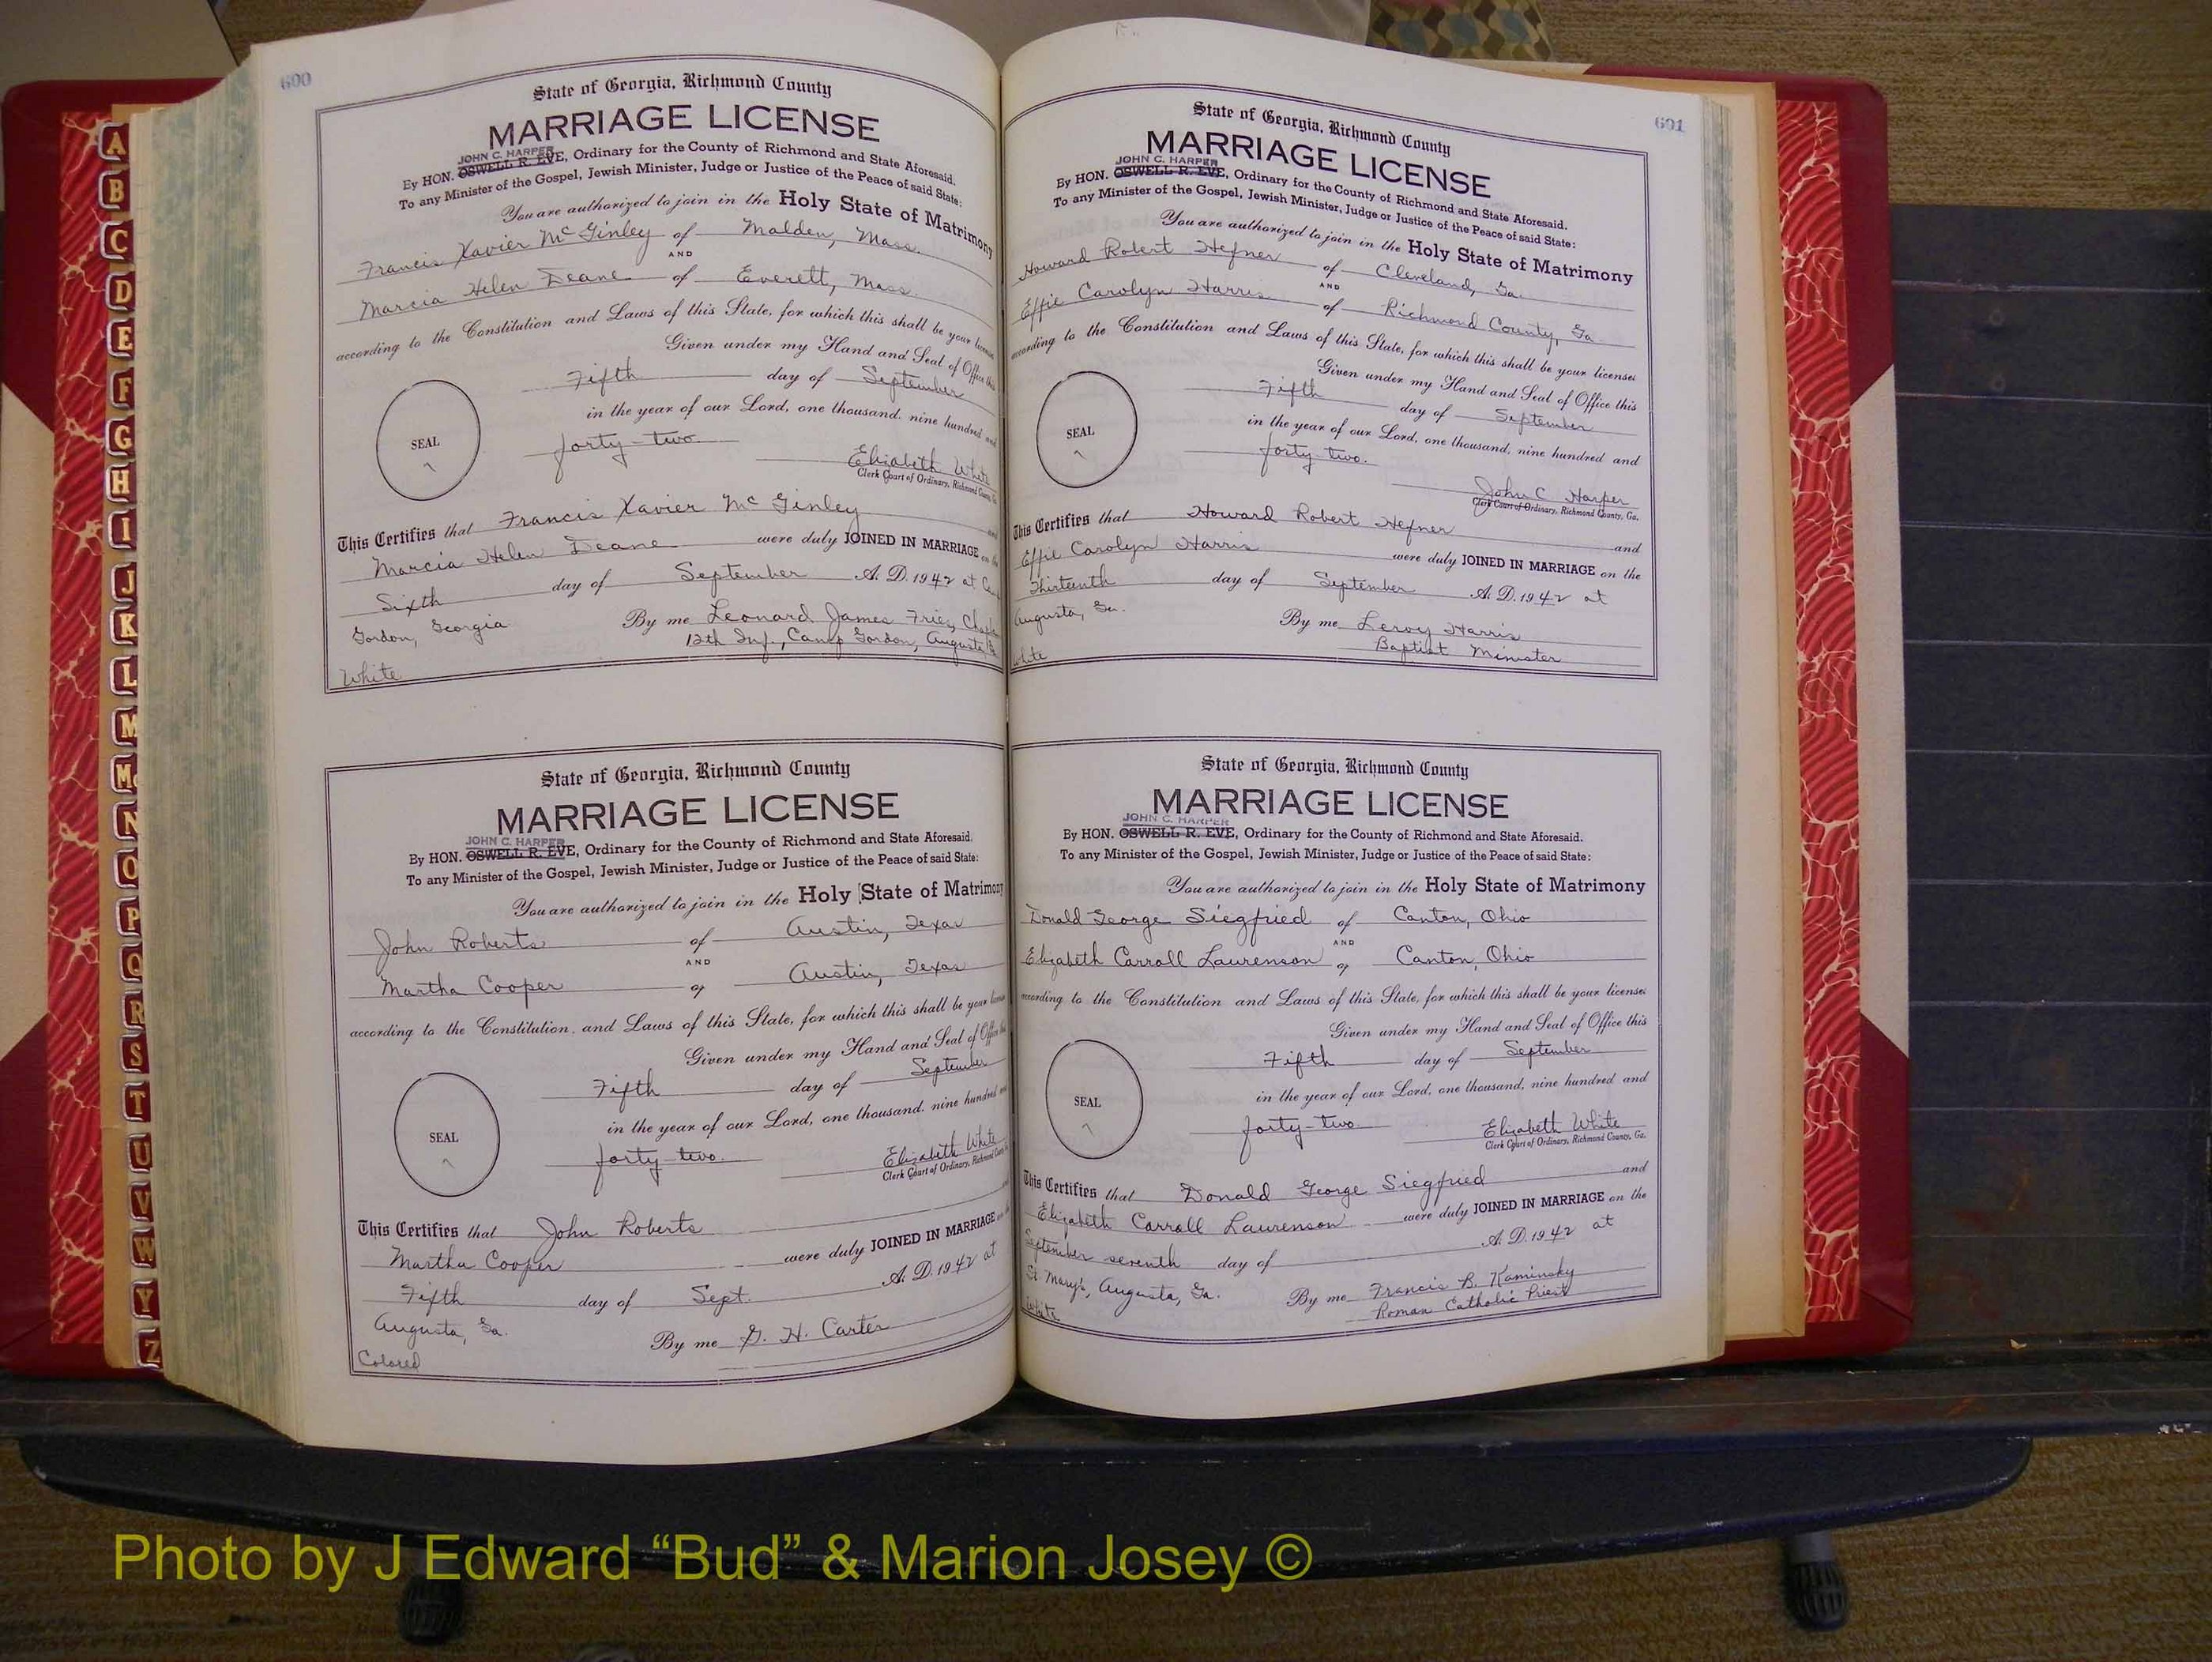 600
State of Georgia, Richmond County
MARRIAGE LICENSE
JOHN C. HARPER
By HON. OSWELL R. EVE, Ordinary for the County of Richmond and State Aforesaid.
To any Minister of the Gospel, Jewish Minister, Judge or Justice of the Peace of said State:
You are authorized to join in the Holy State of Matrimony
Francis Xavier McGinley of Malden, Mass.
AND
Marcia Helen Deane of Everett, Mass.
according to the Constitution and Laws of this State, for which this shall be your license
Given under my Hand and Seal of Office this
Fifth day of September
in the year of our Lord, one thousand, nine hundred and
forty-two.
SEAL
Elizabeth White
Clerk Court of Ordinary, Richmond County, Ga.
This Certifies that Francis Xavier McGinley
Marcia Helen Deane were duly JOINED IN MARRIAGE on
Sixth day of September A. D. 1942 at
Gordon, Georgia By me Leonard James Fries,
12th Inf., Camp Gordon, Augusta
White
State of Georgia, Richmond County
MARRIAGE LICENSE
JOHN C. HARPER
By HON. OSWELL R. EVE, Ordinary for the County of Richmond and State Aforesaid.
To any Minister of the Gospel, Jewish Minister, Judge or Justice of the Peace of said State:
You are authorized to join in the Holy State of Matrimony
John Roberts of Austin, Texas
AND
Martha Cooper of Austin, Texas
according to the Constitution and Laws of this State, for which this shall be your license
Given under my Hand and Seal of Office this
Fifth day of September
in the year of our Lord, one thousand, nine hundred and
forty-two.
SEAL
Elizabeth White
Clerk Court of Ordinary, Richmond County
This Certifies that John Roberts
Martha Cooper were duly JOINED IN MARRIAGE on
Fifth day of Sept. A. D. 1942 at
Augusta, Ga. By me G. H. Carter
Colored
601
State of Georgia, Richmond County
MARRIAGE LICENSE
JOHN C. HARPER
By HON. OSWELL R. EVE, Ordinary for the County of Richmond and State Aforesaid.
To any Minister of the Gospel, Jewish Minister, Judge or Justice of the Peace of said State:
You are authorized to join in the Holy State of Matrimony
Howard Robert Hefner of Cleveland, Ga.
AND
Effie Carolyn Harris of Richmond County, Ga.
according to the Constitution and Laws of this State, for which this shall be your license:
Given under my Hand and Seal of Office this
Fifth day of September
in the year of our Lord, one thousand, nine hundred and
forty-two.
SEAL
John C Harper
Clerk Court of Ordinary, Richmond County, Ga.
This Certifies that Howard Robert Hefner and
Effie Carolyn Harris were duly JOINED IN MARRIAGE on the
Thirteenth day of September A. D. 1942 at
Augusta, Ga. By me Leroy Harris
Baptist Minister
White
State of Georgia, Richmond County
MARRIAGE LICENSE
JOHN C. HARPER
By HON. OSWELL R. EVE, Ordinary for the County of Richmond and State Aforesaid.
To any Minister of the Gospel, Jewish Minister, Judge or Justice of the Peace of said State:
You are authorized to join in the Holy State of Matrimony
Donald George Siegfried of Canton, Ohio
AND
Elizabeth Carroll Laurenson of Canton, Ohio
according to the Constitution and Laws of this State, for which this shall be your license:
Given under my Hand and Seal of Office this
Fifth day of September
in the year of our Lord, one thousand, nine hundred and
forty-two
SEAL
Elizabeth White
Clerk Court of Ordinary, Richmond County, Ga.
This Certifies that Donald George Siegfried and
Elizabeth Carroll Laurenson were duly JOINED IN MARRIAGE on the
September seventh day of A. D. 1942 at
St. Mary's, Augusta, Ga. By me Francis B. Kaminsky
Roman Catholic Priest
White
A
B
C
D
E
F
G
H
I
J
K
L
M
Mc
N
O
P
Q
R
S
T
U
V
W
Y
Z
Photo by J Edward “Bud” & Marion Josey ©